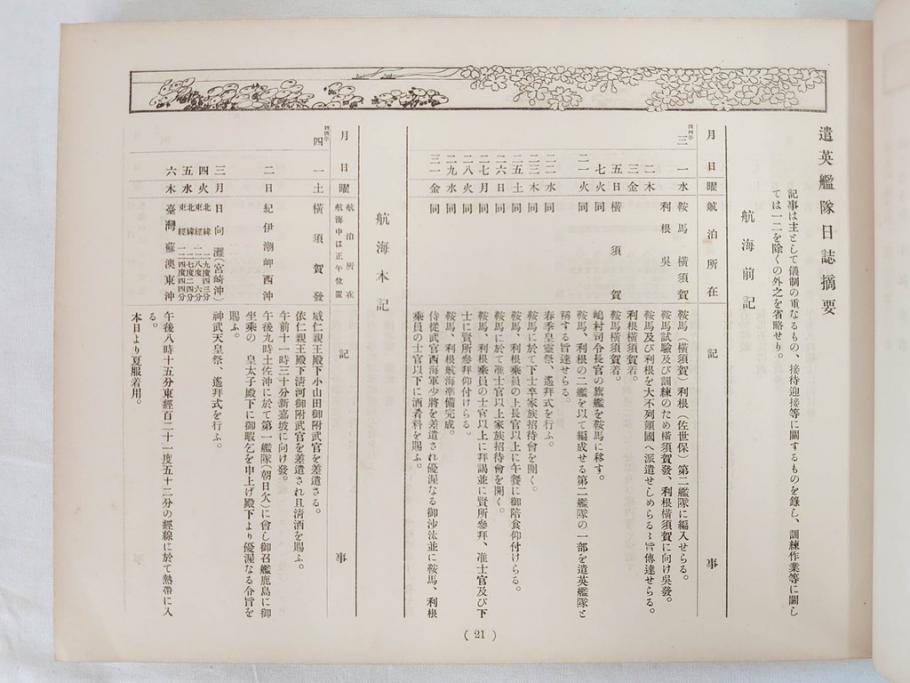 遣英艦隊日誌摘要
記事は主として儀制の重なるもの、接待迎接等に關するものを錄し、訓練作業等に關し
ては一二を除くの外之を省略せり。
航海前記
月 日 曜 碇泊所在 記事
四四年 三 一 水 鞍馬 橫須賀 鞍馬(橫須賀)利根(佐世保)第二艦隊に編入せらる。
利根 吳 鞍馬試驗及び訓練のため橫須賀發、利根橫須賀に向け吳發。
二 木 鞍馬及び利根を大不列顚國へ派遣せしめらるゝ旨傳達せらる。
三 金 利根橫須賀着。
五 日 橫須賀 鞍馬橫須賀着。
七 火 同 嶋村司令長官の旗艦を鞍馬に移す。
二一 火 同 鞍馬、利根の二艦を以て編成せる第二艦隊の一部を遣英艦隊と
稱する旨達せらる。
二二 水 同 春季皇靈祭、遙拜式を行ふ。
二三 木 同 鞍馬に於て下士卒家族招待會を開く。
二五 土 同 鞍馬、利根乘員の上長官以上に午餐に御陪食仰付けらる。
二六 日 同 鞍馬に於て准士官以上家族招待會を開く。
二七 月 同 鞍馬、利根乘員の士官以上に拜謁並に賢所參拜、准士官及び下
二八 火 同 士に賢所參拜仰付けらる。
二九 水 同 鞍馬、利根航海準備完成。
三一 金 同 侍從武官西海軍少將を差遣され優渥なる御沙汰並に鞍馬、利根
乘員の士官以下に酒肴料を賜ふ。
航海本記
月 日 曜 碇泊所在 航海中は正午位置 記事
四四年 四 一 土 橫須賀發 威仁親王殿下小山田御附武官を差遣さる。
依仁親王殿下淸河御附武官を差遣され且淸酒を賜ふ。
午前十一時三十分新嘉坡に向け發。
二 日 紀伊潮岬西沖 午後九時土佐沖に於て第一艦隊(朝日欠)に會し御召艦鹿島に御
坐乘の 皇太子殿下に御暇乞を申上げ殿下より優渥なる令旨を
賜ふ。
三 月 日向灘(宮崎沖) 神武天皇祭、遙拜式を行ふ。
四 火 北緯 二九度四三分 東經
五 水 北緯 東經
六 木 臺灣蘇澳東沖 午後八時十五分東經百二十一度五十二分の經線に於て熱帶に入
る。
本日より夏服着用。
( 21 )